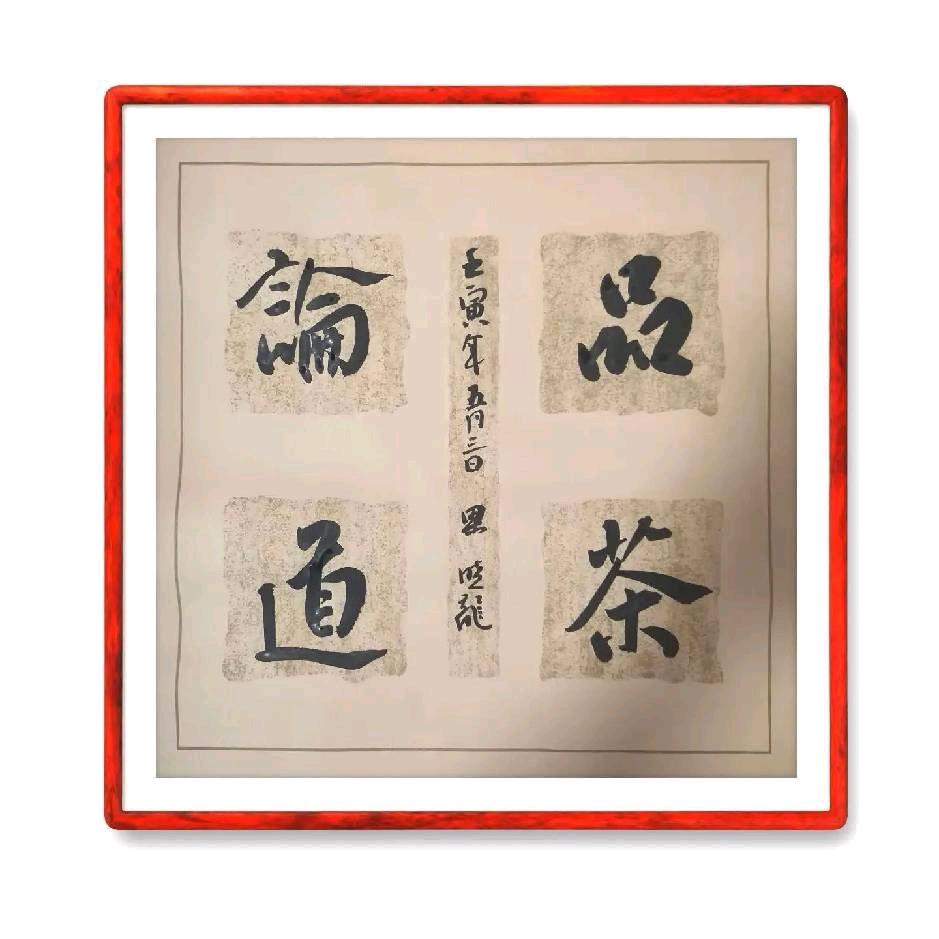 品茶
論道
壬寅年五月三日 思 晓龍